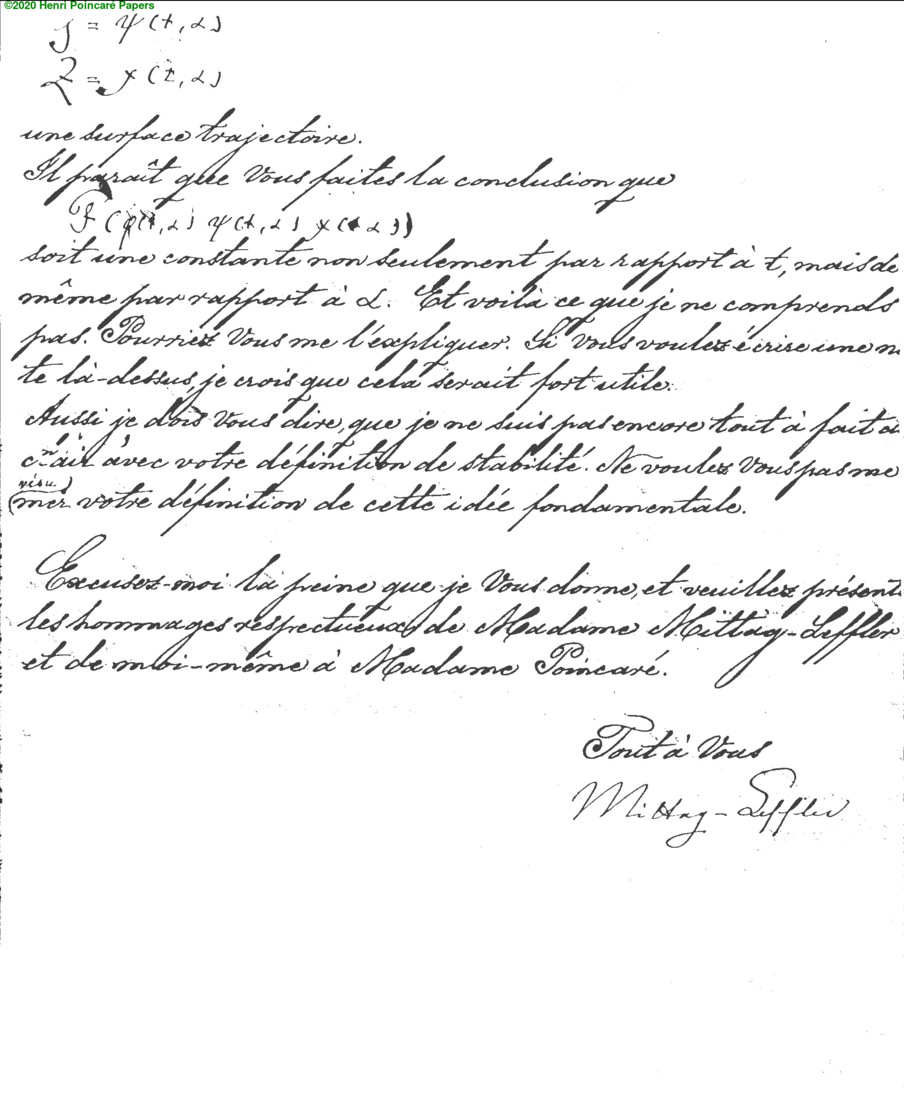 ©2020 Henri Poincaré Papers
y = ψ(t, α)
z = χ(t, α)
une surface trajectoire.
Il paraît que Vous faites la conclusion que
F (φ(t, α) ψ(t, α) χ(t α))
soit une constante non seulement par rapport à t, mais de
même par rapport à α. Et voilà ce que je ne comprends
pas. Pourriez Vous me l'expliquer. Si Vous voulez écrire une n
te là-dessus, je crois que cela serait fort utile.
Aussi je dois Vous dire, que je ne suis pas encore tout à fait
avec votre définition de stabilité. Ne voulez Vous pas me
mer votre définition de cette idée fondamentale.
Excusez-moi la peine que je Vous donne, et veuillez présent
les hommages respectueux de Madame Mittag-Leffler
et de moi-même à Madame Poincaré.
Tout à Vous
Mittag-Leffler